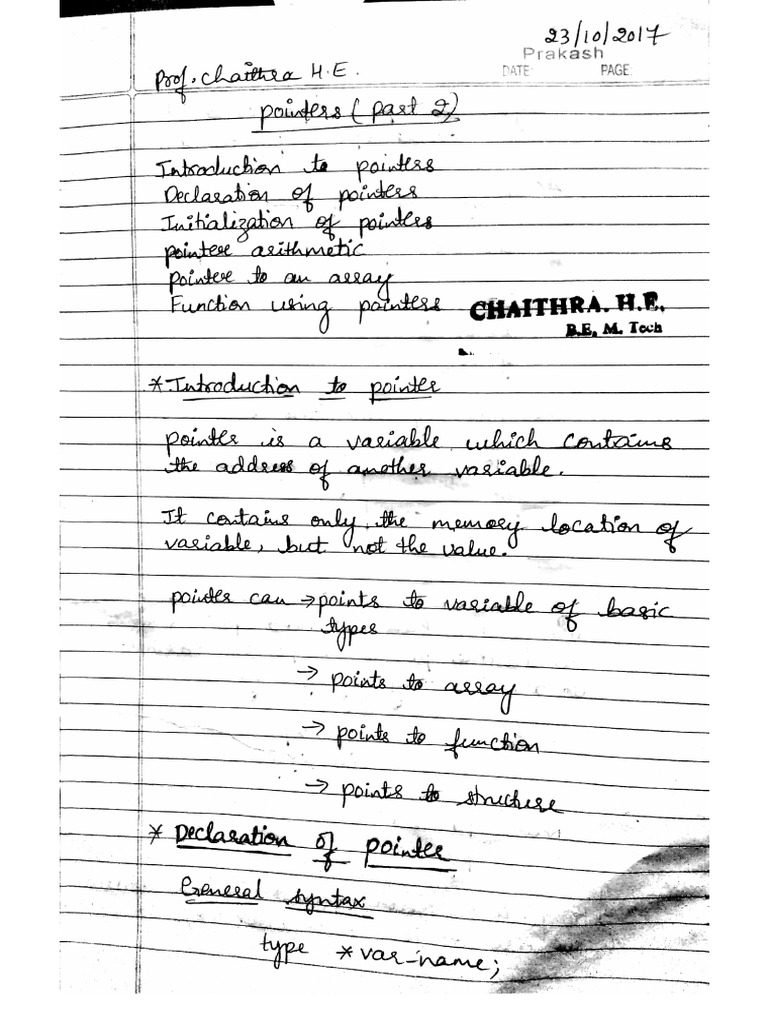 23/10/2017
Prakash
DATE: PAGE:
Prof. Chaithra H.E.
pointers (part 2)
Introduction to pointers
Declaration of pointers
Initialization of pointers
pointer arithmetic
pointer to an array
Function using pointers
CHAITHRA. H.E.
B.E, M. Tech
* Introduction to pointer
pointer is a variable which contains
the address of another variable.
It contains only the memory location of
variable, but not the value.
pointer can → points to variable of basic
types
→ points to array
→ points to function
→ points to structure
* Declaration of pointer
General syntax
type *var-name;